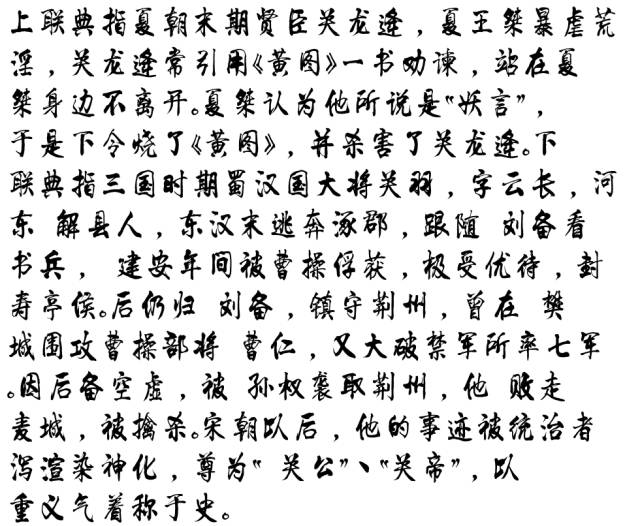 上联典指夏朝末期贤臣关龙逄，夏王桀暴虐荒
淫，关龙逄常引用《黄图》一书劝谏，站在夏
桀身边不离开。夏桀认为他所说是“妖言”，
于是下令烧了《黄图》，并杀害了关龙逄。下
联典指三国时期蜀汉国大将关羽，字云长，河
东 解县人，东汉末逃奔涿郡，跟随 刘备看
书兵， 建安年间被曹操俘获，极受优待，封
寿亭侯。后仍归 刘备，镇守荆州，曾在 樊
城围攻曹操部将 曹仁，又大破禁军所率七军
。因后备空虚，被 孙权袭取荆州，他 败走
麦城，被擒杀。宋朝以后，他的事迹被统治者
泻渲染神化，尊为“ 关公”、“关帝”，以
重义气着称于史。